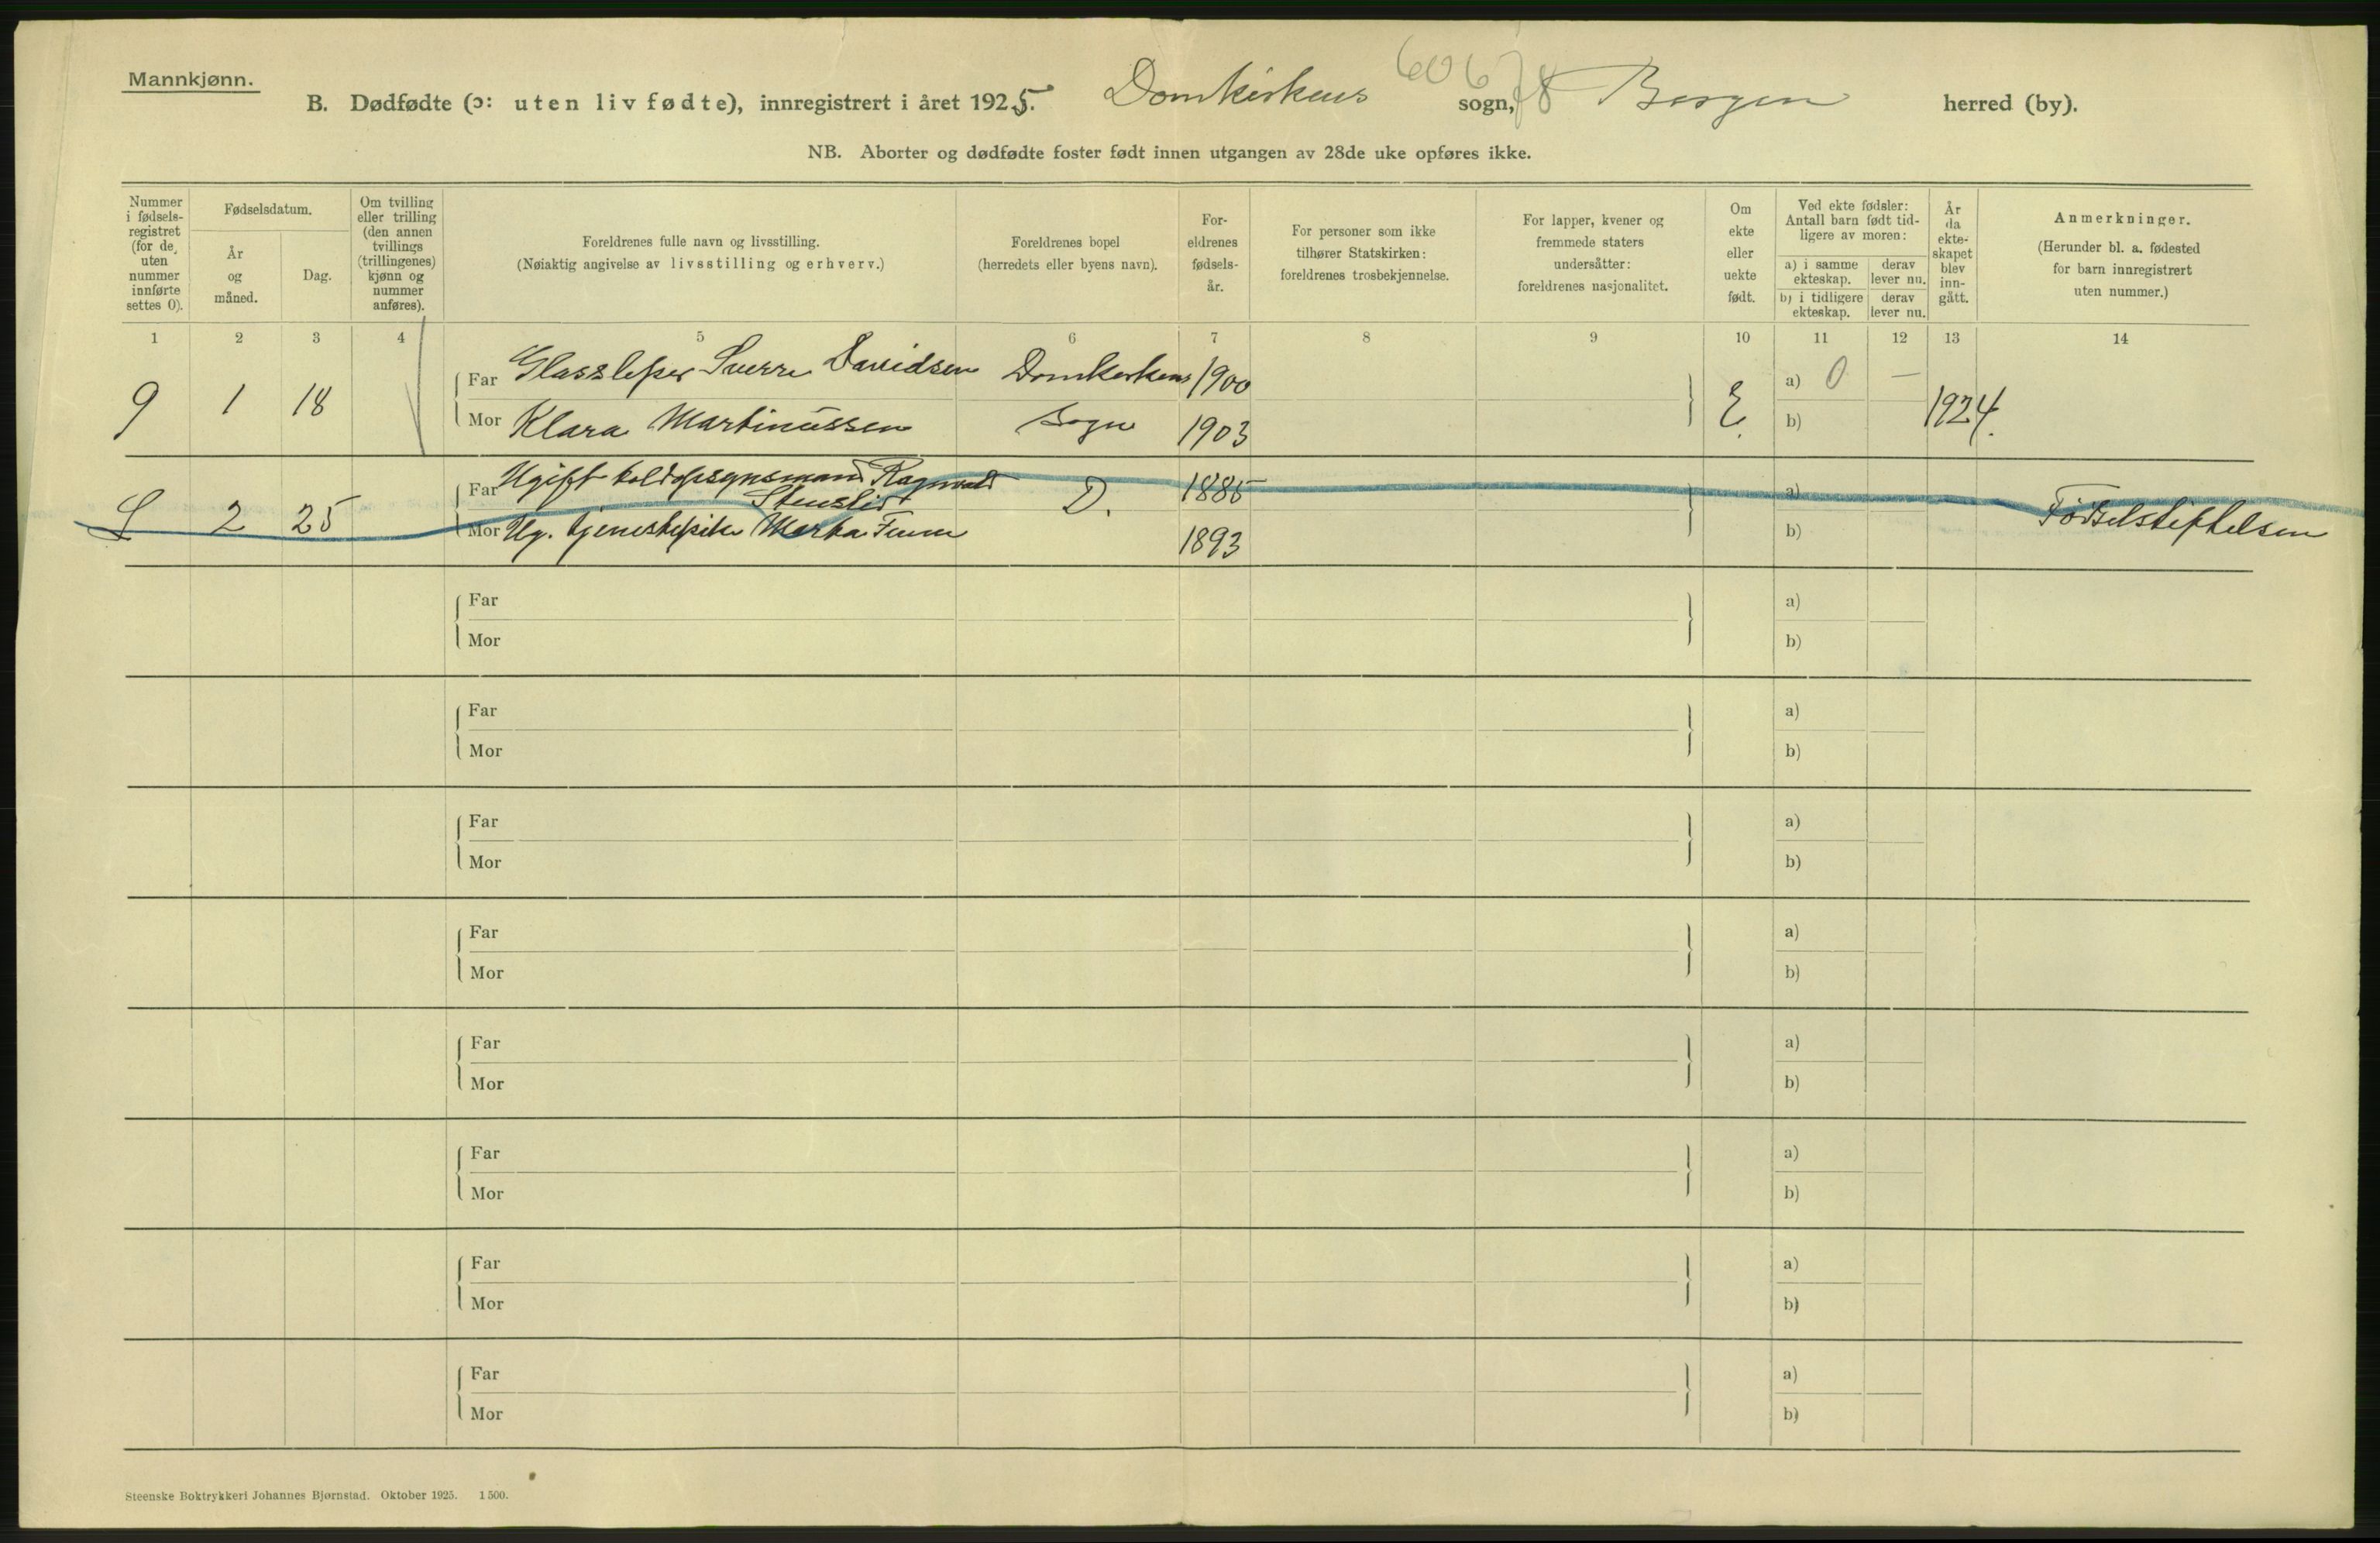 Mannkjønn.
B. Dødfødte (ɔ: uten liv fødte), innregistrert i året 1925. Domkirkens sogn, Bergen herred (by).
60678
NB. Aborter og dødfødte foster født innen utgangen av 28de uke opføres ikke.
Nummer i fødsels-registret (for de uten nummer innførte settes 0).
Fødselsdatum.
År og måned.
Dag.
Om tvilling eller trilling (den annen tvillings (trillingenes) kjønn og nummer anføres).
Foreldrenes fulle navn og livsstilling.
(Nøiaktig angivelse av livsstilling og erhverv.)
Foreldrenes bopel
(herredets eller byens navn).
For-eldrenes fødsels-år.
For personer som ikke tilhører Statskirken: foreldrenes trosbekjennelse.
For lapper, kvener og fremmede staters undersåtter: foreldrenes nasjonalitet.
Om ekte eller uekte født.
Ved ekte fødsler: Antall barn født tid-ligere av moren:
a) i samme ekteskap.
derav lever nu.
b) i tidligere ekteskap.
derav lever nu.
År da ekte-skapet blev inn-gått.
Anmerkninger.
(Herunder bl. a. fødested for barn innregistrert uten nummer.)
1 2 3 4 5 6 7 8 9 10 11 12 13 14
9 1 18 Far Glassleper Sverre Davidsen Domkirkens 1900 E. a) 0 — 1924.
Mor Klara Martinussen Sogn 1903 b)
2 25 Far Ugift toldopsynsmand Ragnvald D. 1885 a) Fødselstiftelsen
Stenslid
Mor Ug. tjenestepike Marta 1893 b)
Far a)
Mor b)
Far a)
Mor b)
Far a)
Mor b)
Far a)
Mor b)
Far a)
Mor b)
Far a)
Mor b)
Far a)
Mor b)
Far a)
Mor b)
Steenske Boktrykkeri Johannes Bjørnstad. Oktober 1925. 1 500.